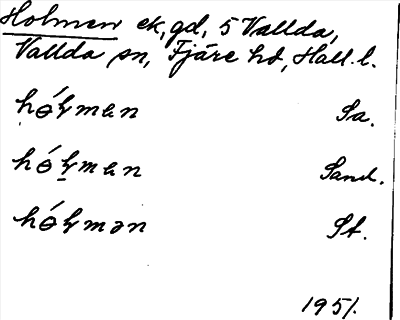 Holmen ek, gd, 5 Vallda,
Vallda sn, Fjäre hd, Hall. l.
hóɫman Sa.
hóɫman Sand.
hóɫmən St.
1951.